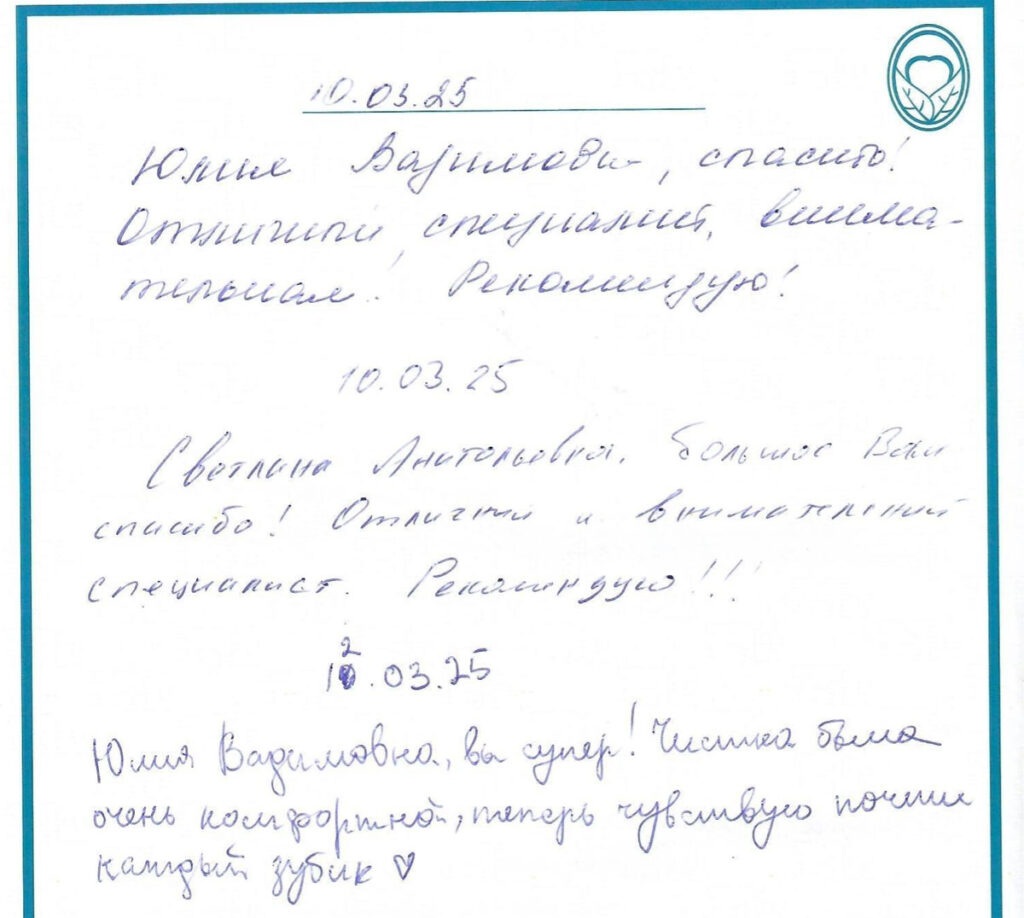 10.03.25
Юлия Вадимовна, спасибо!
Отличный специалист, внима-
тельная! Рекомендую!
10.03.25
Светлана Анатольевна, большое Вам
спасибо! Отличный и внимательный
специалист. Рекомендую!!!
12.03.25
Юлия Вадимовна, вы супер! Чистка была
очень комфортной, теперь чувствую почти
каждый зубик ♡